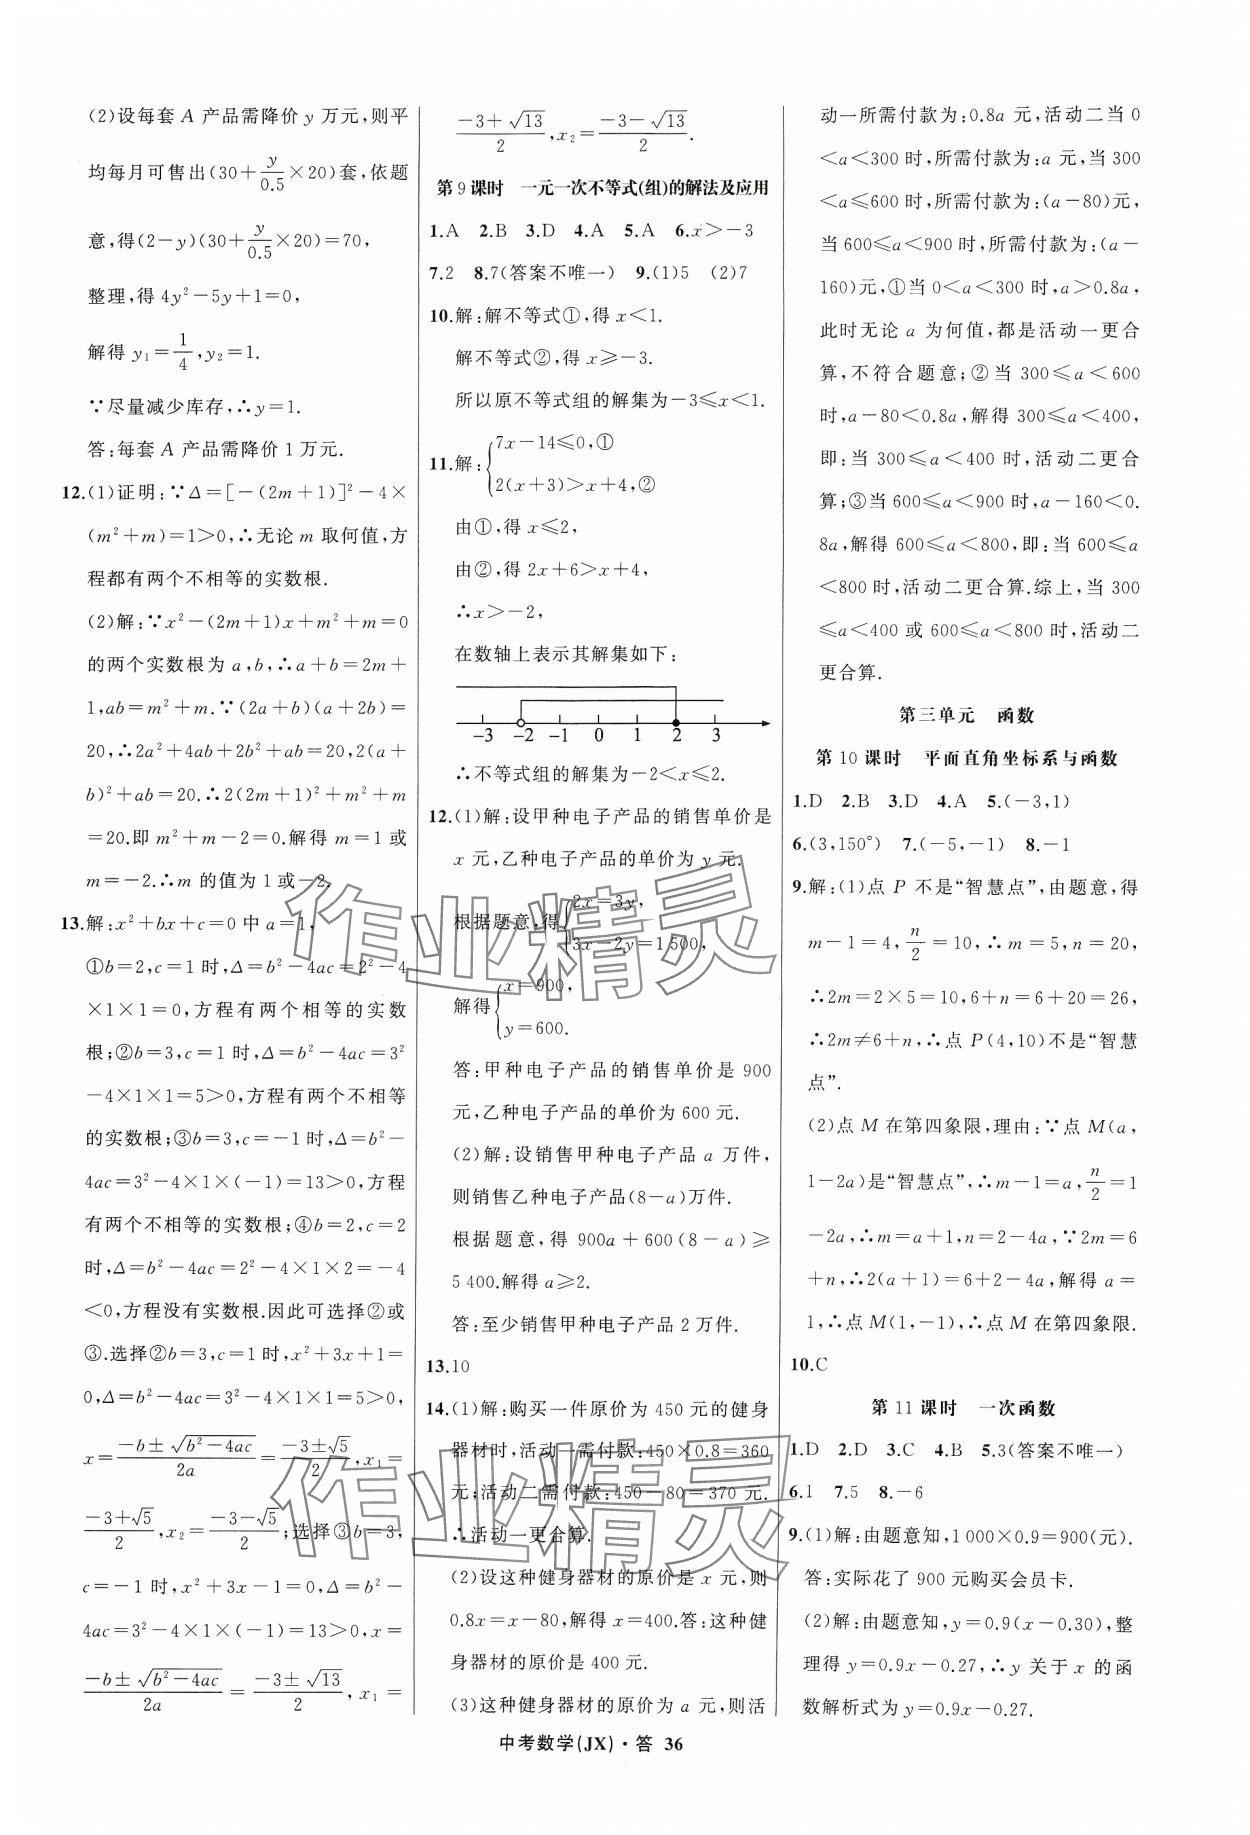 (2)设每套 A 产品需降价 y 万元,则平
均每月可售出(30+y/0.5×20)套,依题
意,得(2-y)(30+y/0.5×20)=70,
整理,得 4y²-5y+1=0,
解得 y₁=1/4,y₂=1.
∵尽量减少库存,∴y=1.
答:每套 A 产品需降价 1 万元.
12.(1)证明:∵Δ=[-(2m+1)]²-4×
(m²+m)=1>0,∴无论 m 取何值,方
程都有两个不相等的实数根.
(2)解:∵x²-(2m+1)x+m²+m=0
的两个实数根为 a,b,∴a+b=2m+
1,ab=m²+m.∵(2a+b)(a+2b)=
20,∴2a²+4ab+2b²+ab=20,2(a+
b)²+ab=20.∴2(2m+1)²+m²+m
=20.即 m²+m-2=0.解得 m=1 或
m=-2.∴m 的值为 1 或-2.
13.解:x²+bx+c=0 中 a=1,
①b=2,c=1 时,Δ=b²-4ac=2²-4
×1×1=0,方程有两个相等的实数
根;②b=3,c=1 时,Δ=b²-4ac=3²
-4×1×1=5>0,方程有两个不相等
的实数根;③b=3,c=-1 时,Δ=b²-
4ac=3²-4×1×(-1)=13>0,方程
有两个不相等的实数根;④b=2,c=2
时,Δ=b²-4ac=2²-4×1×2=-4
<0,方程没有实数根.因此可选择②或
③.选择②b=3,c=1 时,x²+3x+1=
0,Δ=b²-4ac=3²-4×1×1=5>0,
x=(-b±√(b²-4ac))/2a=(-3±√5)/2,x₁=
(-3+√5)/2,x₂=(-3-√5)/2;选择③b=3,
c=-1 时,x²+3x-1=0,Δ=b²-
4ac=3²-4×1×(-1)=13>0,x=
(-b±√(b²-4ac))/2a=(-3±√13)/2,x₁=
(-3+√13)/2,x₂=(-3-√13)/2.
第 9 课时 一元一次不等式(组)的解法及应用
1.A 2.B 3.D 4.A 5.A 6.x>-3
7.2 8.7(答案不唯一) 9.(1)5 (2)7
10.解:解不等式①,得 x<1.
解不等式②,得 x≥-3.
所以原不等式组的解集为-3≤x<1.
11.解:{7x-14≤0,①
2(x+3)>x+4,②
由①,得 x≤2,
由②,得 2x+6>x+4,
∴x>-2,
在数轴上表示其解集如下:
-3 -2 -1 0 1 2 3
∴不等式组的解集为-2<x≤2.
12.(1)解:设甲种电子产品的销售单价是
x 元,乙种电子产品的单价为 y 元.
根据题意,得{2x=3y,
3x-2y=1 500,
解得{x=900,
y=600.
答:甲种电子产品的销售单价是 900
元,乙种电子产品的单价为 600 元.
(2)解:设销售甲种电子产品 a 万件,
则销售乙种电子产品(8-a)万件.
根据题意,得 900a+600(8-a)≥
5 400.解得 a≥2.
答:至少销售甲种电子产品 2 万件.
13.10
14.(1)解:购买一件原价为 450 元的健身
器材时,活动一需付款:450×0.8=360
元;活动二需付款:450-80=370 元.
∴活动一更合算.
(2)设这种健身器材的原价是 x 元,则
0.8x=x-80,解得 x=400.答:这种健
身器材的原价是 400 元.
(3)这种健身器材的原价为 a 元,则活
动一所需付款为:0.8a 元,活动二当 0
<a<300 时,所需付款为:a 元,当 300
≤a≤600 时,所需付款为:(a-80)元,
当 600≤a<900 时,所需付款为:(a-
160)元,①当 0<a<300 时,a>0.8a,
此时无论 a 为何值,都是活动一更合
算,不符合题意;②当 300≤a<600
时,a-80<0.8a,解得 300≤a<400,
即:当 300≤a<400 时,活动二更合
算;③当 600≤a<900 时,a-160<0.
8a,解得 600≤a<800,即:当 600≤a
<800 时,活动二更合算.综上,当 300
≤a<400 或 600≤a<800 时,活动二
更合算.
第三单元 函数
第 10 课时 平面直角坐标系与函数
1.D 2.B 3.D 4.A 5.(-3,1)
6.(3,150°) 7.(-5,-1) 8.-1
9.解:(1)点 P 不是“智慧点”,由题意,得
m-1=4,n/2=10,∴m=5,n=20,
∴2m=2×5=10,6+n=6+20=26,
∴2m≠6+n,∴点 P(4,10)不是“智慧
点”.
(2)点 M 在第四象限,理由:∵点 M(a,
1-2a)是“智慧点”,∴m-1=a,n/2=1
-2a,∴m=a+1,n=2-4a,∵2m=6
+n,∴2(a+1)=6+2-4a,解得 a=
1,∴点 M(1,-1),∴点 M 在第四象限.
10.C
第 11 课时 一次函数
1.D 2.D 3.C 4.B 5.3(答案不唯一)
6.1 7.5 8.-6
9.(1)解:由题意知,1 000×0.9=900(元).
答:实际花了 900 元购买会员卡.
(2)解:由题意知,y=0.9(x-0.30),整
理得 y=0.9x-0.27,∴y 关于 x 的函
数解析式为 y=0.9x-0.27.
中考数学(JX)·答 36
作业精灵
作业精灵